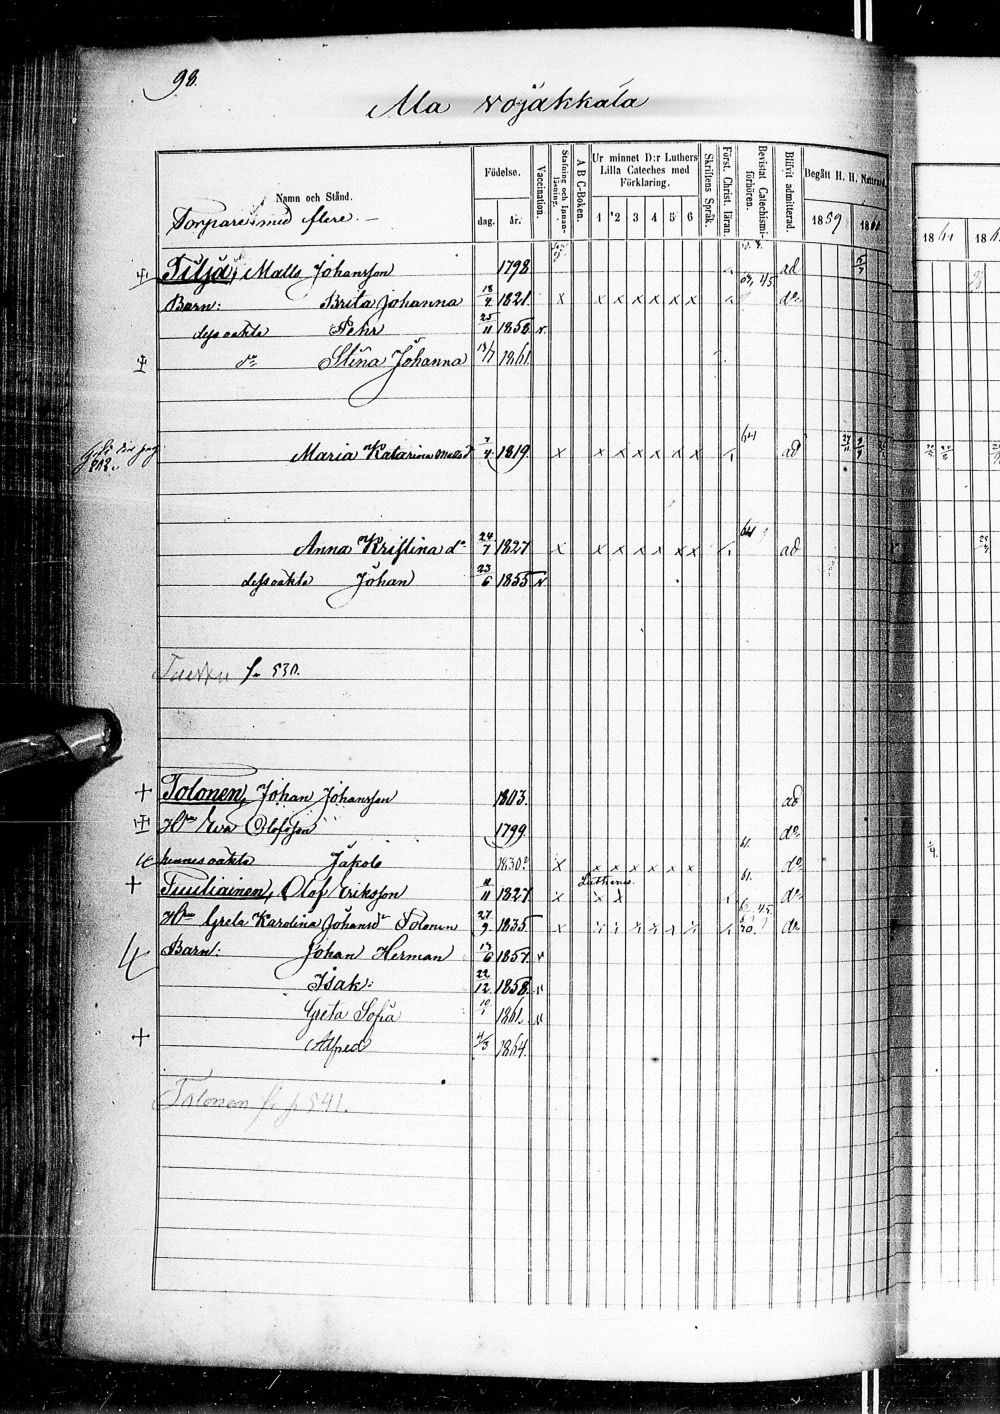 98.
Ala vojakkala
Namn och Stånd.
Födelse.
dag. år.
Vaccination.
Stafning och Innanläsning.
A B C-Boken.
Ur minnet D:r Luthers Lilla Cateches med Förklaring.
1 2 3 4 5 6
Skriftens Språk.
Först. Christ. läran.
Bevistat Catechismiförhören.
Blifvit admitterad.
Begått H. H. Nattvard.
1859 1860
1861
Torpare med flere.
Tilja, Matts Johansson 1798 ad
Barn: Brita Johanna 18/4 1821 x x x x x x x do
dess oäkta Pehr 25/11 1858 v
do Stina Johanna 13/7 1861
Maria Katarina Mattsd 7/4 1819 x x x x x x x 64 ad
212.
Anna Kristina do 24/7 1827 x x x x x x x 64 ad
dess oäkta Johan 23/6 1855 v
530.
Tolonen, Johan Johansson 1803 ad
Hu Eva Olofsson 1799 do
hennes oäkta Jakob 1830 x x x x x x x 61. do
Tuuliainen, Olof Eriksson 11/11 1827 x Lutherus. x x 61. do
Hu Greta Karolina Johansd Tolonen 27/9 1835 x x x x x x x do
Barn: Johan Herman 13/6 1857 v
Isak 22/12 1858 v
Greta Sofia 10/1 1861 v
Alfred 4/3 1864.
Tolonen p 541.